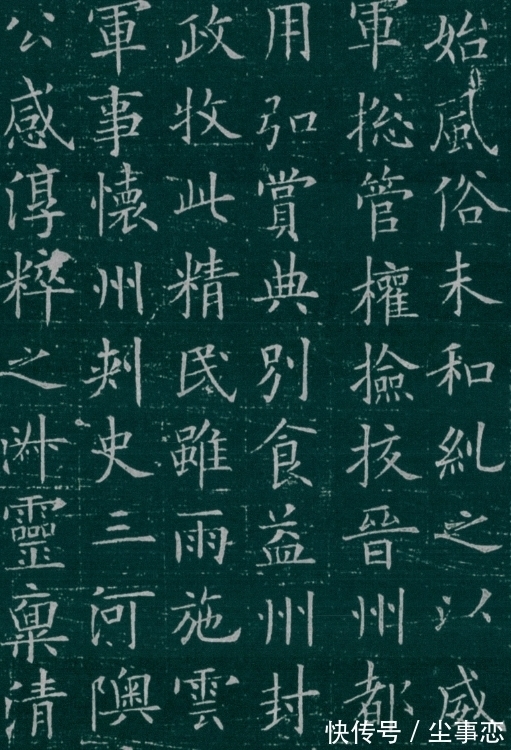 始風俗未和糺之以威
軍捴管權撿挍晉州都
用弘賞典別食益州封
政牧此精民雖雨施雲
軍事懷州刾史三河隩
公感淳粹之靈稟清
快传号 / 尘事恋